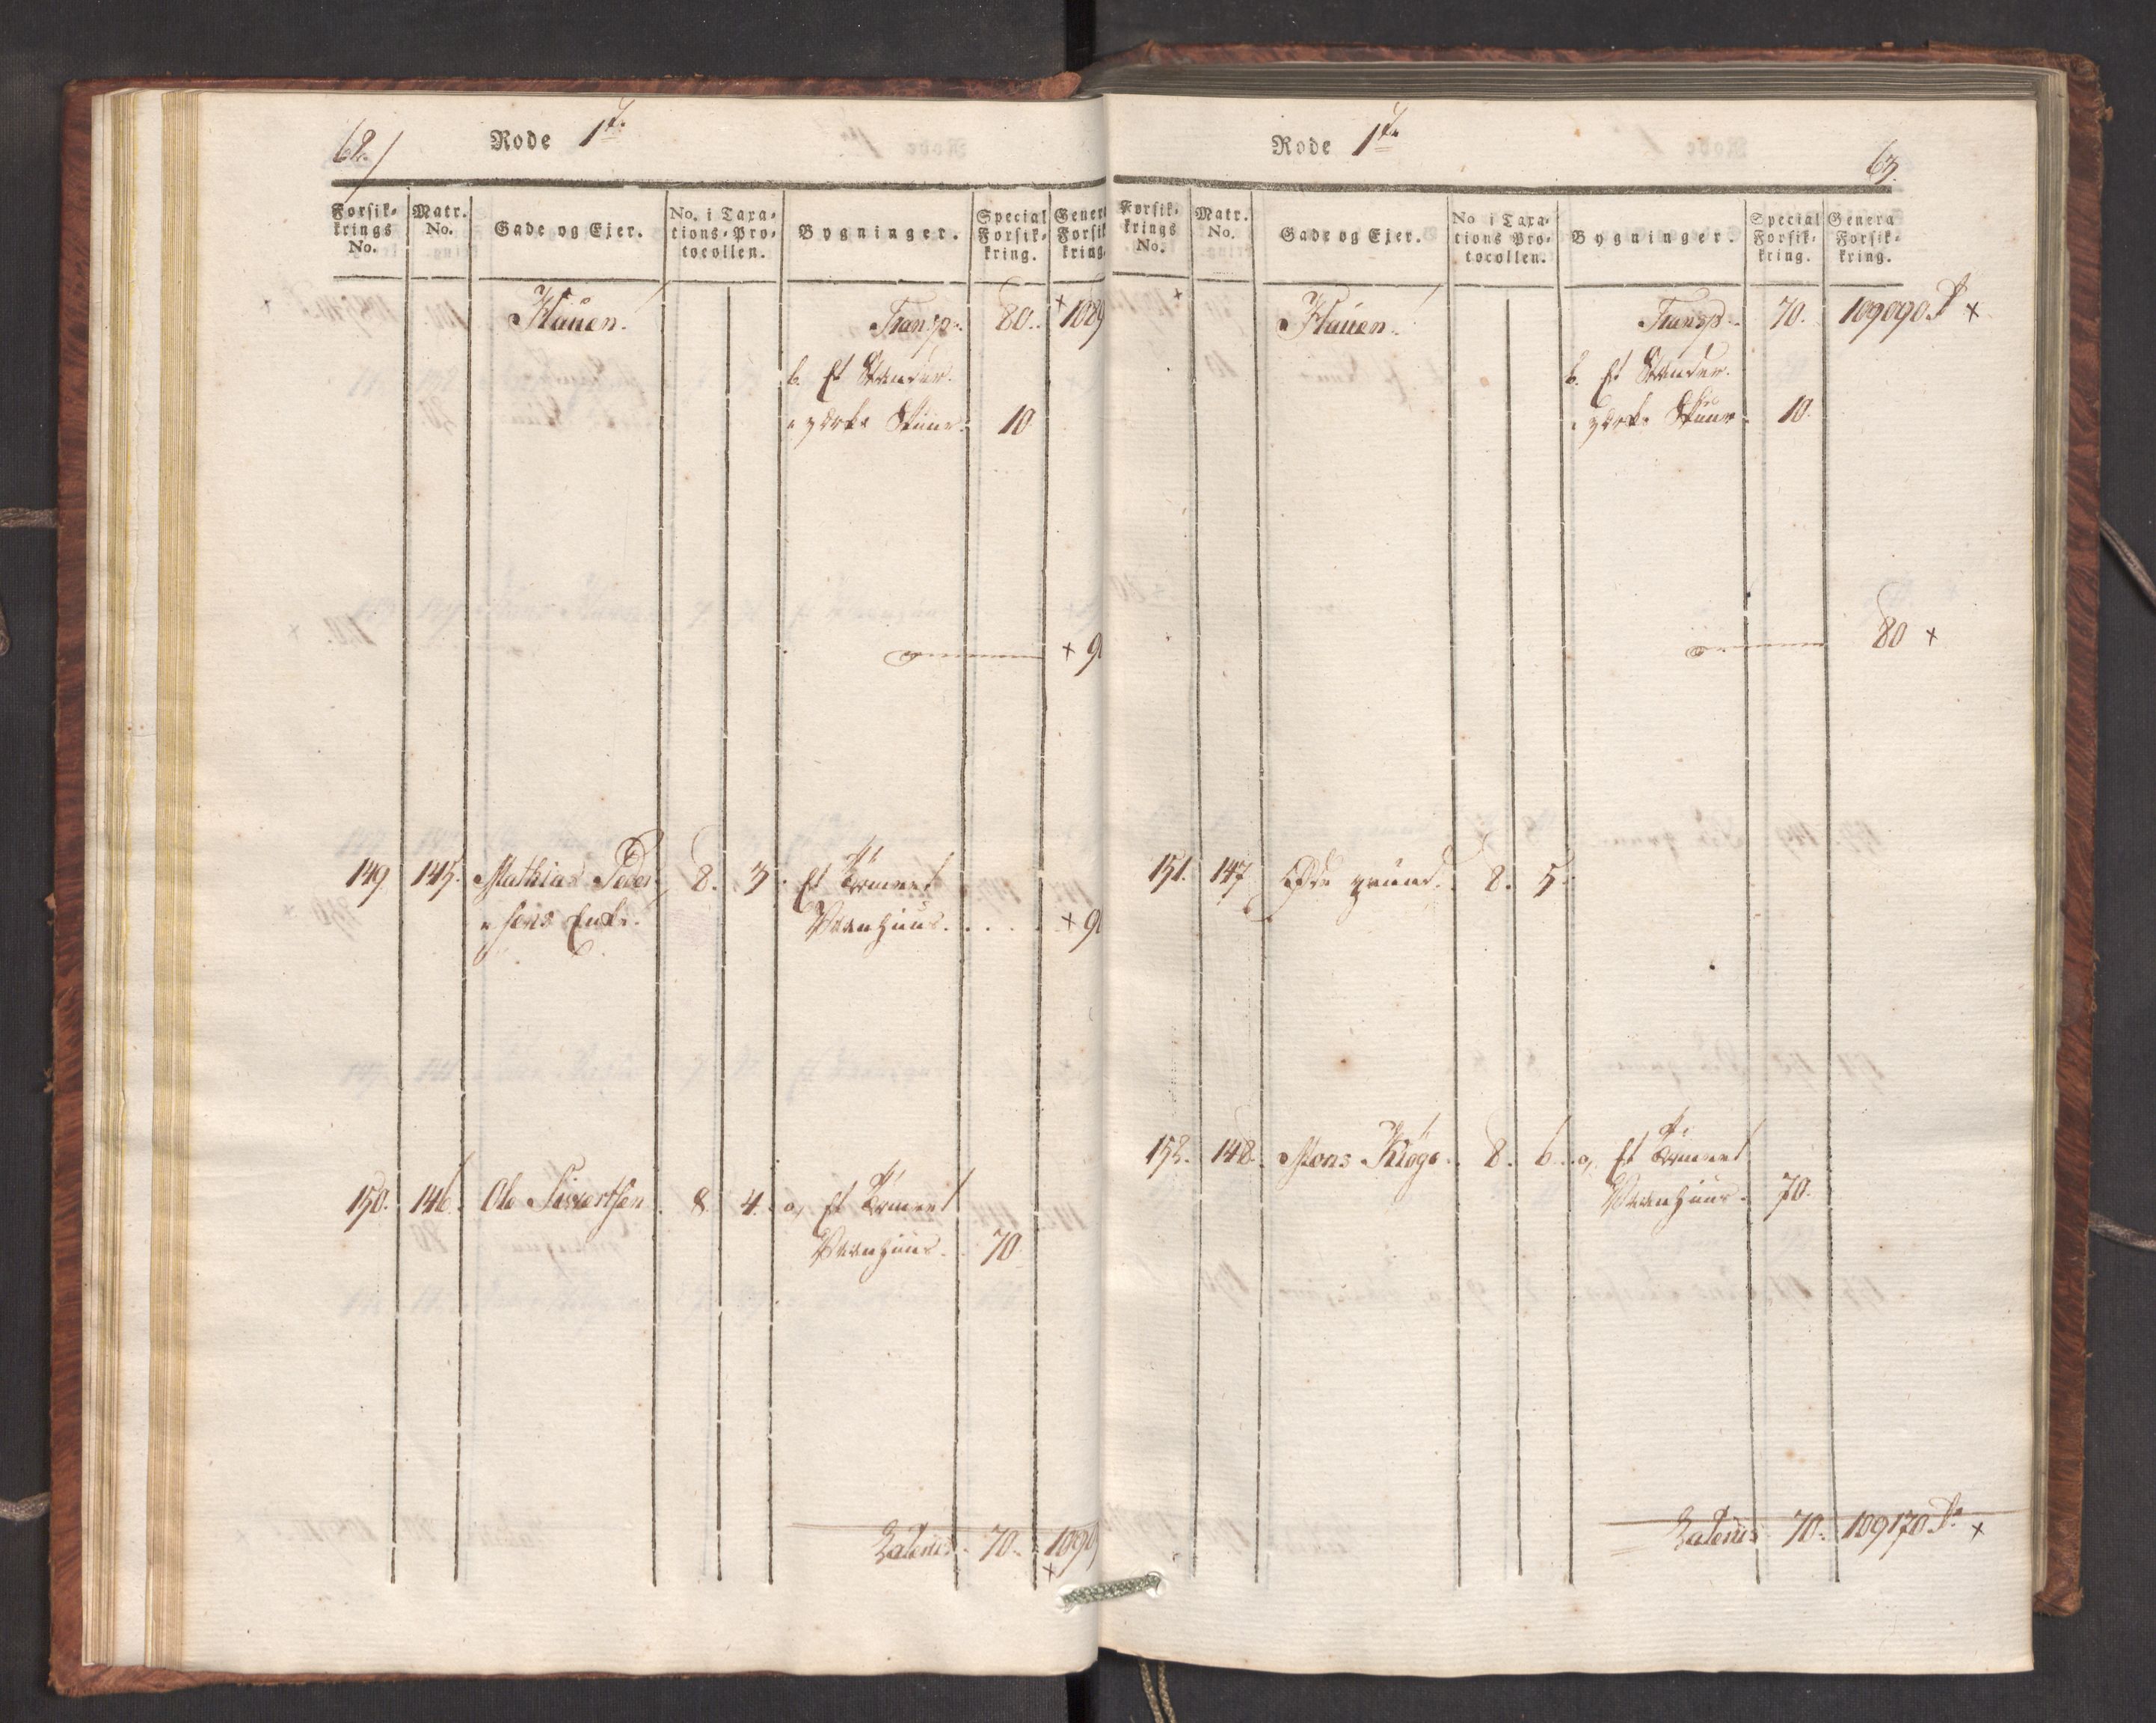 62.
Rode 1te
Forsik-
krings
No.
Matr.
No.
Gade og Ejer.
No. i Taxa-
tions-Pro-
tocollen.
Bygninger.
Special
Forsik-
kring.
Gener
Forsik
kring.
Klauen.
Transp. 80. + 1089
b. Et Stænder-
værks Skuur. 10
+ 9
149. 145. Mathias Peder- 8. 3. Et Tömret
sens Enke. Vaanhuus. . . . + 9
150. 146. Ole Sivertsen. 8. 4. a, Et Tömret
Vaanhuus. 70
Lateris. 70. 1090
+
Rode 1te
63.
Forsik-
krings
No.
Matr.
No.
Gade og Ejer.
No i Taxa-
tions Pro-
tocollen.
Bygninger.
Special
Forsik-
kring.
Genera
Forsik-
kring.
Klauen.
Transp. 70. 109090 +
b. Et Stænder-
værks Skuur. 10.
80 +
151. 147 Øde grund. 8. 5.
152. 148. Mons Krøge. 8. 6. a, Et Tömret
Vaanhuus. 70.
Lateris 70. 109170 +